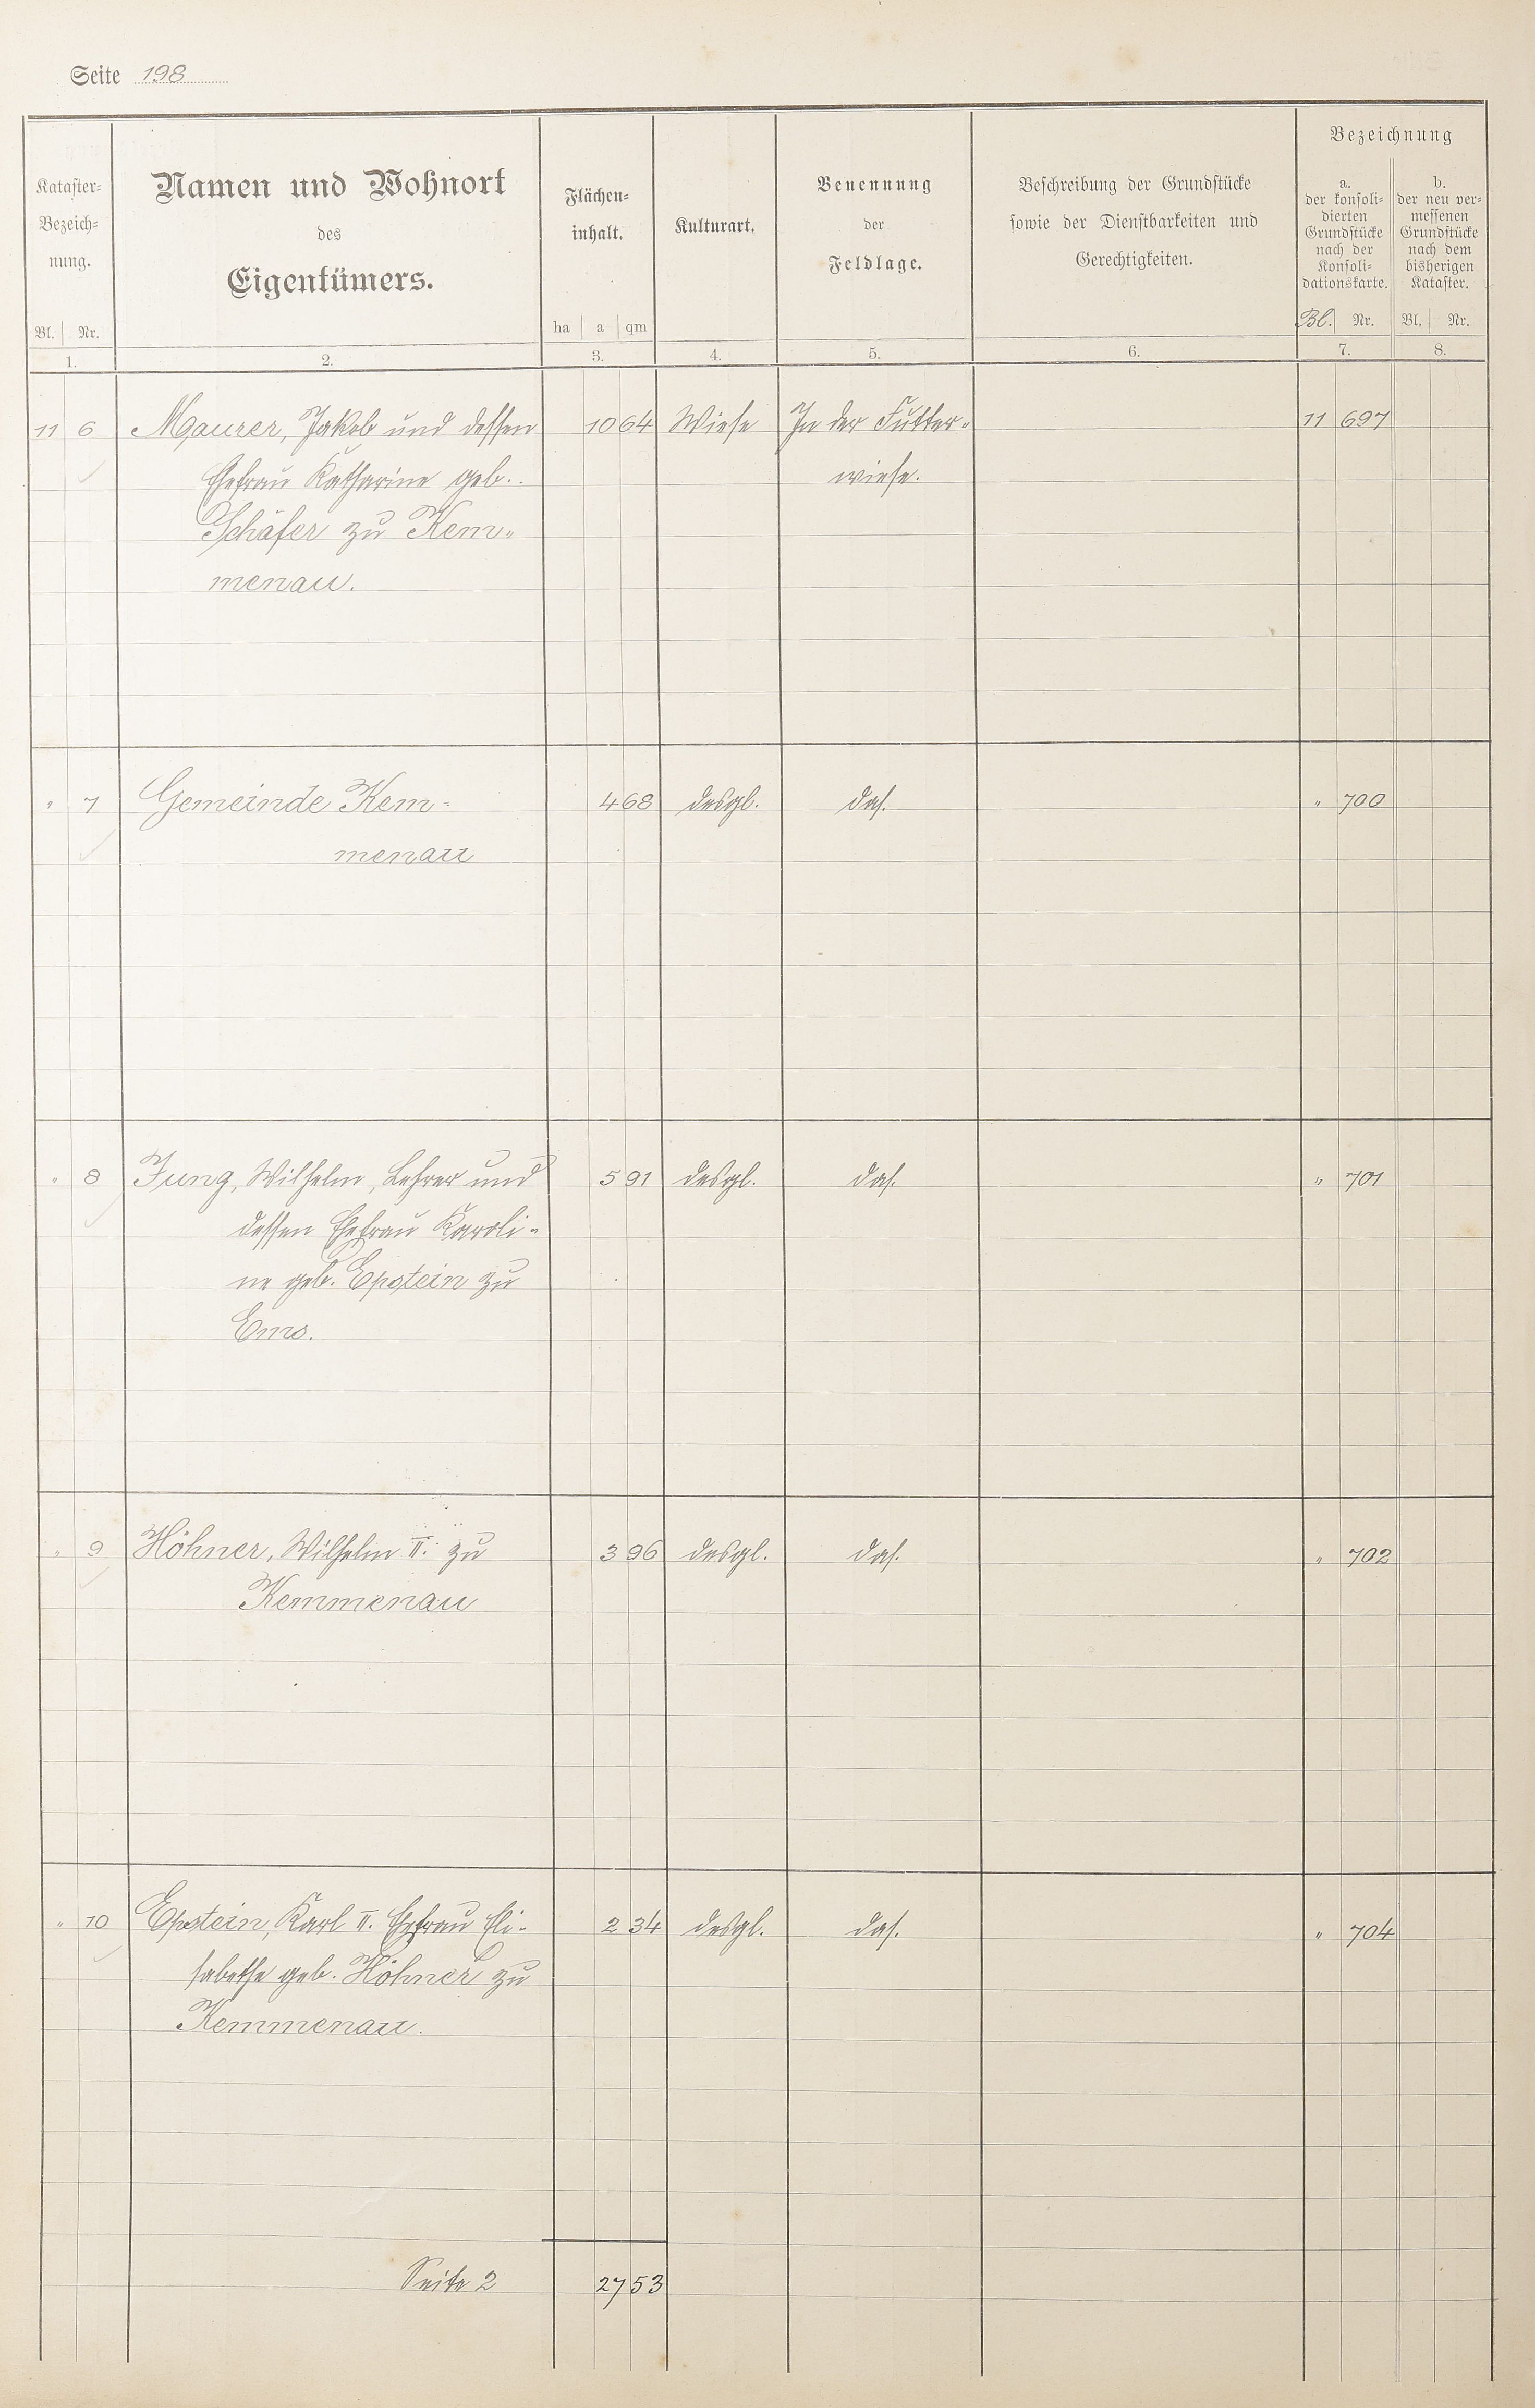 Seite 198
Kataster-
Bezeich-
nung.
Bl. Nr.
1.
Namen und Wohnort
des
Eigentümers.
2.
Flächen-
inhalt.
ha a qm
3.
Kulturart.
4.
Benennung
der
Feldlage.
5.
Beschreibung der Grundstücke
sowie der Dienstbarkeiten und
Gerechtigkeiten.
6.
Bezeichnung
a.
der konsoli-
dierten
Grundstücke
nach der
Konsoli-
dationskarte.
Bl. Nr.
7.
b.
der neu ver-
messenen
Grundstücke
nach dem
bisherigen
Kataster.
Bl. Nr.
8.
11 6 Maurer, Jakob und dessen 10 64 Wiese In der Futter- 11 697
Ehefrau Katharine geb. wiese.
Schäfer zu Kem-
menau.
" 7 Gemeinde Kem- 4 68 desgl. das. " 700
menau
" 8 Jung, Wilhelm, Lehrer und 5 91 desgl. das. " 701
dessen Ehefrau Karoli-
ne geb. Epstein zu
Ems.
" 9 Höhner, Wilhelm II. zu 3 96 desgl. das. " 702
Kemmenau
" 10 Epstein, Karl II. Ehefrau Eli- 2 34 desgl. das. " 704
sabethe geb. Höhner zu
Kemmenau.
Seite 2 27 53